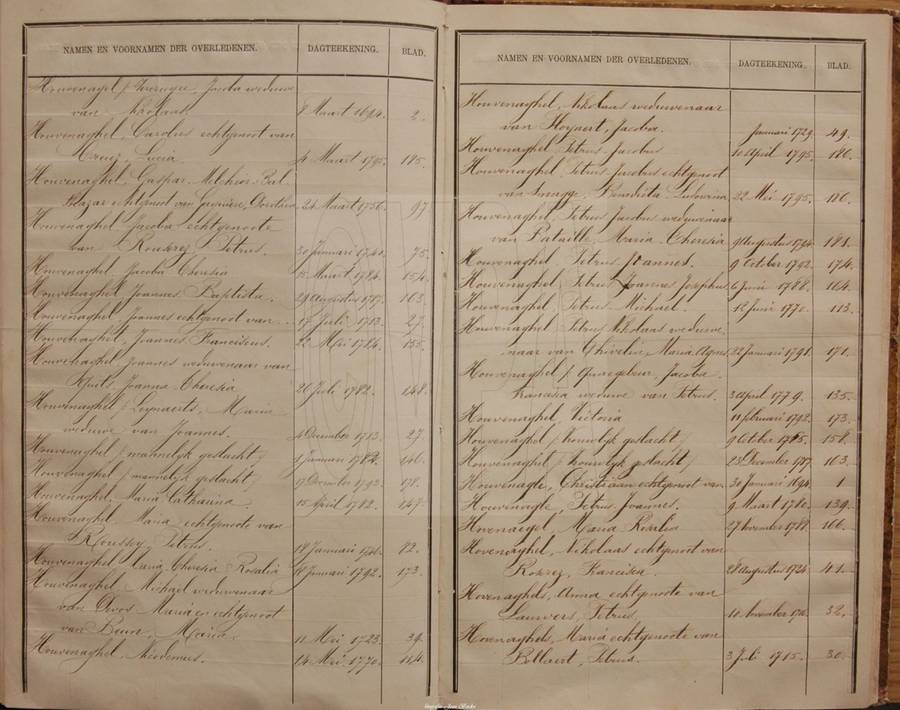 NAMEN EN VOORNAMEN DER OVERLEDENEN. DAGTEEKENING. BLAD.
Jacoba weduwe
van Nikolaas 8 Maart 1694. 2.
Houvenaghel, Carolus echtgenoot van
Lucia 4 Maart 1795. 185.
Houvenaghel, Gaspar Melchior Bal
thazar echtgenoot van Dorothea 24 Maart 1756. 97
Houvenaghel Jacoba echtgenoote
van Rouzez Petrus. 30 Januari 1740. 75.
Houvenaghel, Jacoba Theresia 15 Maart 1784. 154.
Houvenaghel, Joannes Baptista. 29 Augustus 1787. 163.
Houvenaghel, Joannes echtgenoot van 17 Juli 1713. 27.
Houvenaghel, Joannes Franciscus. 22 Mei 1784. 155.
Houvenaghel Joannes weduwenaar van
Joanna Theresia 20 Juli 1782. 148.
Houvenaghel / Leynaerts, Maria
weduwe van Joannes. 4 December 1713. 27.
Houvenaghel / mannelyk geslacht / 1 Januari 1782. 146.
Houvenaghel / mannelyk geslacht / 9 December 1793. 178.
Houvenaghel, Maria Catharina. 15 April 1782. 147.
Houvenaghel, Maria echtgenoote van
Petrus. 18 Januarij 82.
Houvenaghel, Maria Theresia Rosalia 8 Januari 1792. 173.
Houvenaghel Michael weduwenaar
van Devos Maria en echtgenoot
van Beun, Maria. 11 Mei 1723. 39.
Houvenaghel, Nicodemus. 14 Mei 1770. 114.
NAMEN EN VOORNAMEN DER OVERLEDENEN. DAGTEEKENING. BLAD.
Houvenaghel, Nikolaas weduwenaar
van Hoyaert, Jacoba. Januari 1729. 49.
Houvenaghel Petrus Jacobus 10 April 1795. 186.
Houvenaghel, Petrus Jacobus echtgenoot
van Benedicta Ludovina 22 Mei 1795. 186.
Houvenaghel, Petrus Jacobus weduwenaar
van Pataille, Maria Theresia 9 Augustus 1794. 181.
Houvenaghel, Petrus Joannes. 9 October 1792. 174.
Houvenaghel, Petrus Joannes Josephus 6 Juni 1788. 164.
Houvenaghel Petrus Michael. 12 Juni 1770. 113.
Houvenaghel, Petrus Nikolaas weduwe
naar van Ghivelin, Maria Agnes 22 Januari 1791. 171.
Houvenaghel / Jacoba
Francisca weduwe van Petrus. 3 April 1779. 135.
Houvenaghel, Victoria 11 Februari 1792. 173.
Houvenaghel / vrouwelyk geslacht / 9 October 158.
Houvenaghel / vrouwelyk geslacht / 23 December 1787. 163.
Houvenagle, Christiaan echtgenoot van 30 Januari 1694. 1
Houvenagle, Petrus Joannes. 9 Maart 1780. 139.
Hovenaegel, Maria Rosalia 27 November 1788. 166.
Hovenaghel, Nikolaas echtgenoot van
Rouzez, Francisca. 28 Augustus 1724. 41.
Hovenaghels, Anna echtgenoote van
Lauwers, Petrus 10 November 32.
Hovenaghels, Maria echtgenoote van
Bellaert, Petrus. 3 Juli 1715. 30.